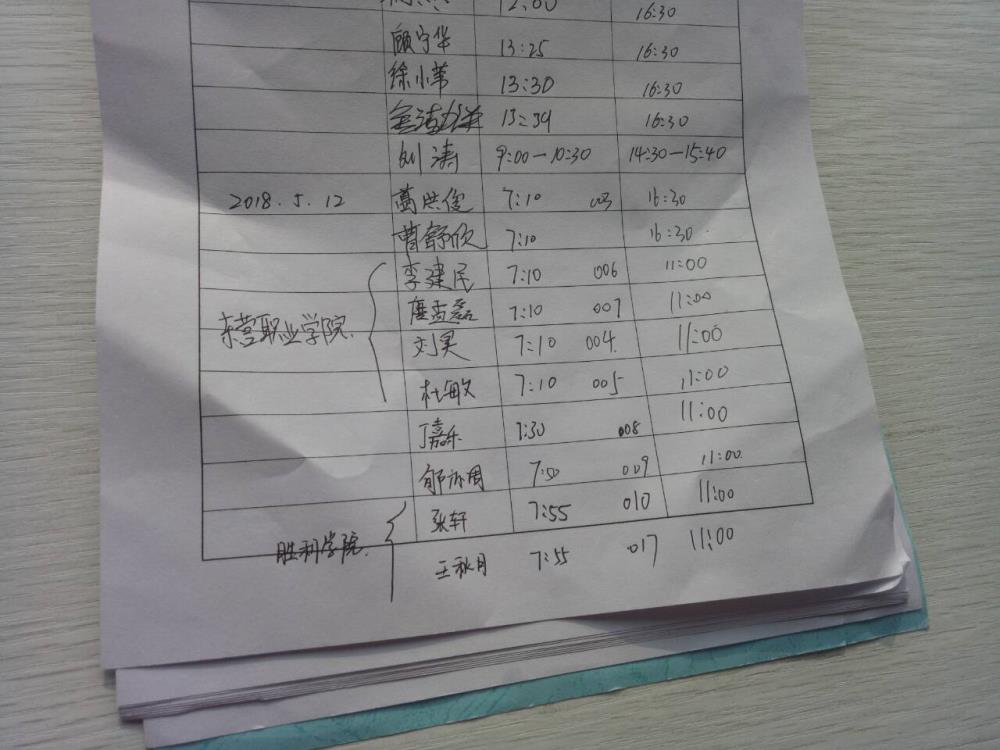 12:00 16:30
顾宁华 13:25 16:30
徐小苇 13:30 16:30
13:34 16:30
刘涛 9:00—10:30 14:30—15:40
2018.5.12 葛洪俊 7:10 003 16:30
曹舒欣 7:10 16:30
李建民 7:10 006 11:00
7:10 007 11:00
东营职业学院 刘昊 7:10 004 11:00
杜敏 7:10 005 11:00
丁嘉乐 7:30 008 11:00
7:50 009 11:00
张轩 7:55 010 11:00
胜利学院
王秋月 7:55 017 11:00